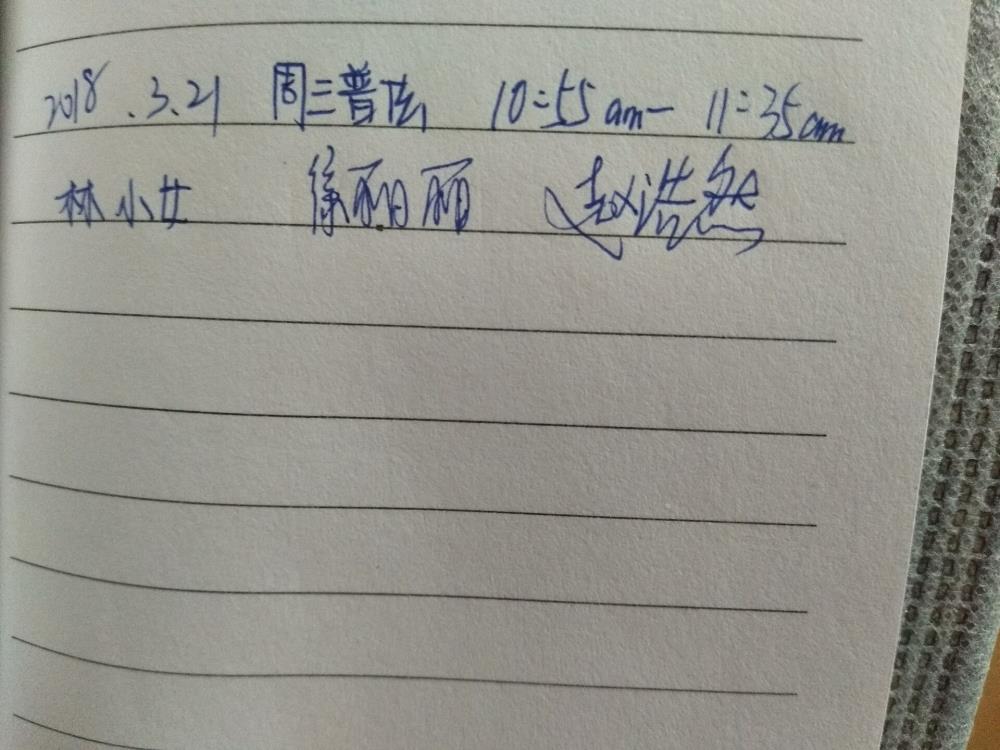 2018.3.21 周三普法 10:55am-11:35am
林小女 徐丽丽 赵浩然